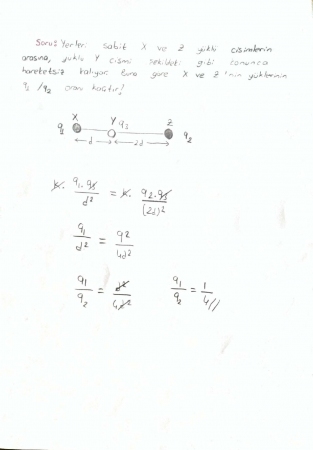 Soru: Yerleri sabit X ve Z yüklü cisimlerin
arasına, yüklü Y cismi şekildeki gibi konunca
hareketsiz kalıyor. Buna göre X ve Z'nin yüklerinin
q1 /q2 oranı kaçtır?
X Y Z
q1 q3 q2
d 2d
k. q1.q3 / d² = k. q2.q3 / (2d)²
q1 / d² = q2 / 4d²
q1 / q2 = d² / 4d² q1 / q2 = 1 / 4 //